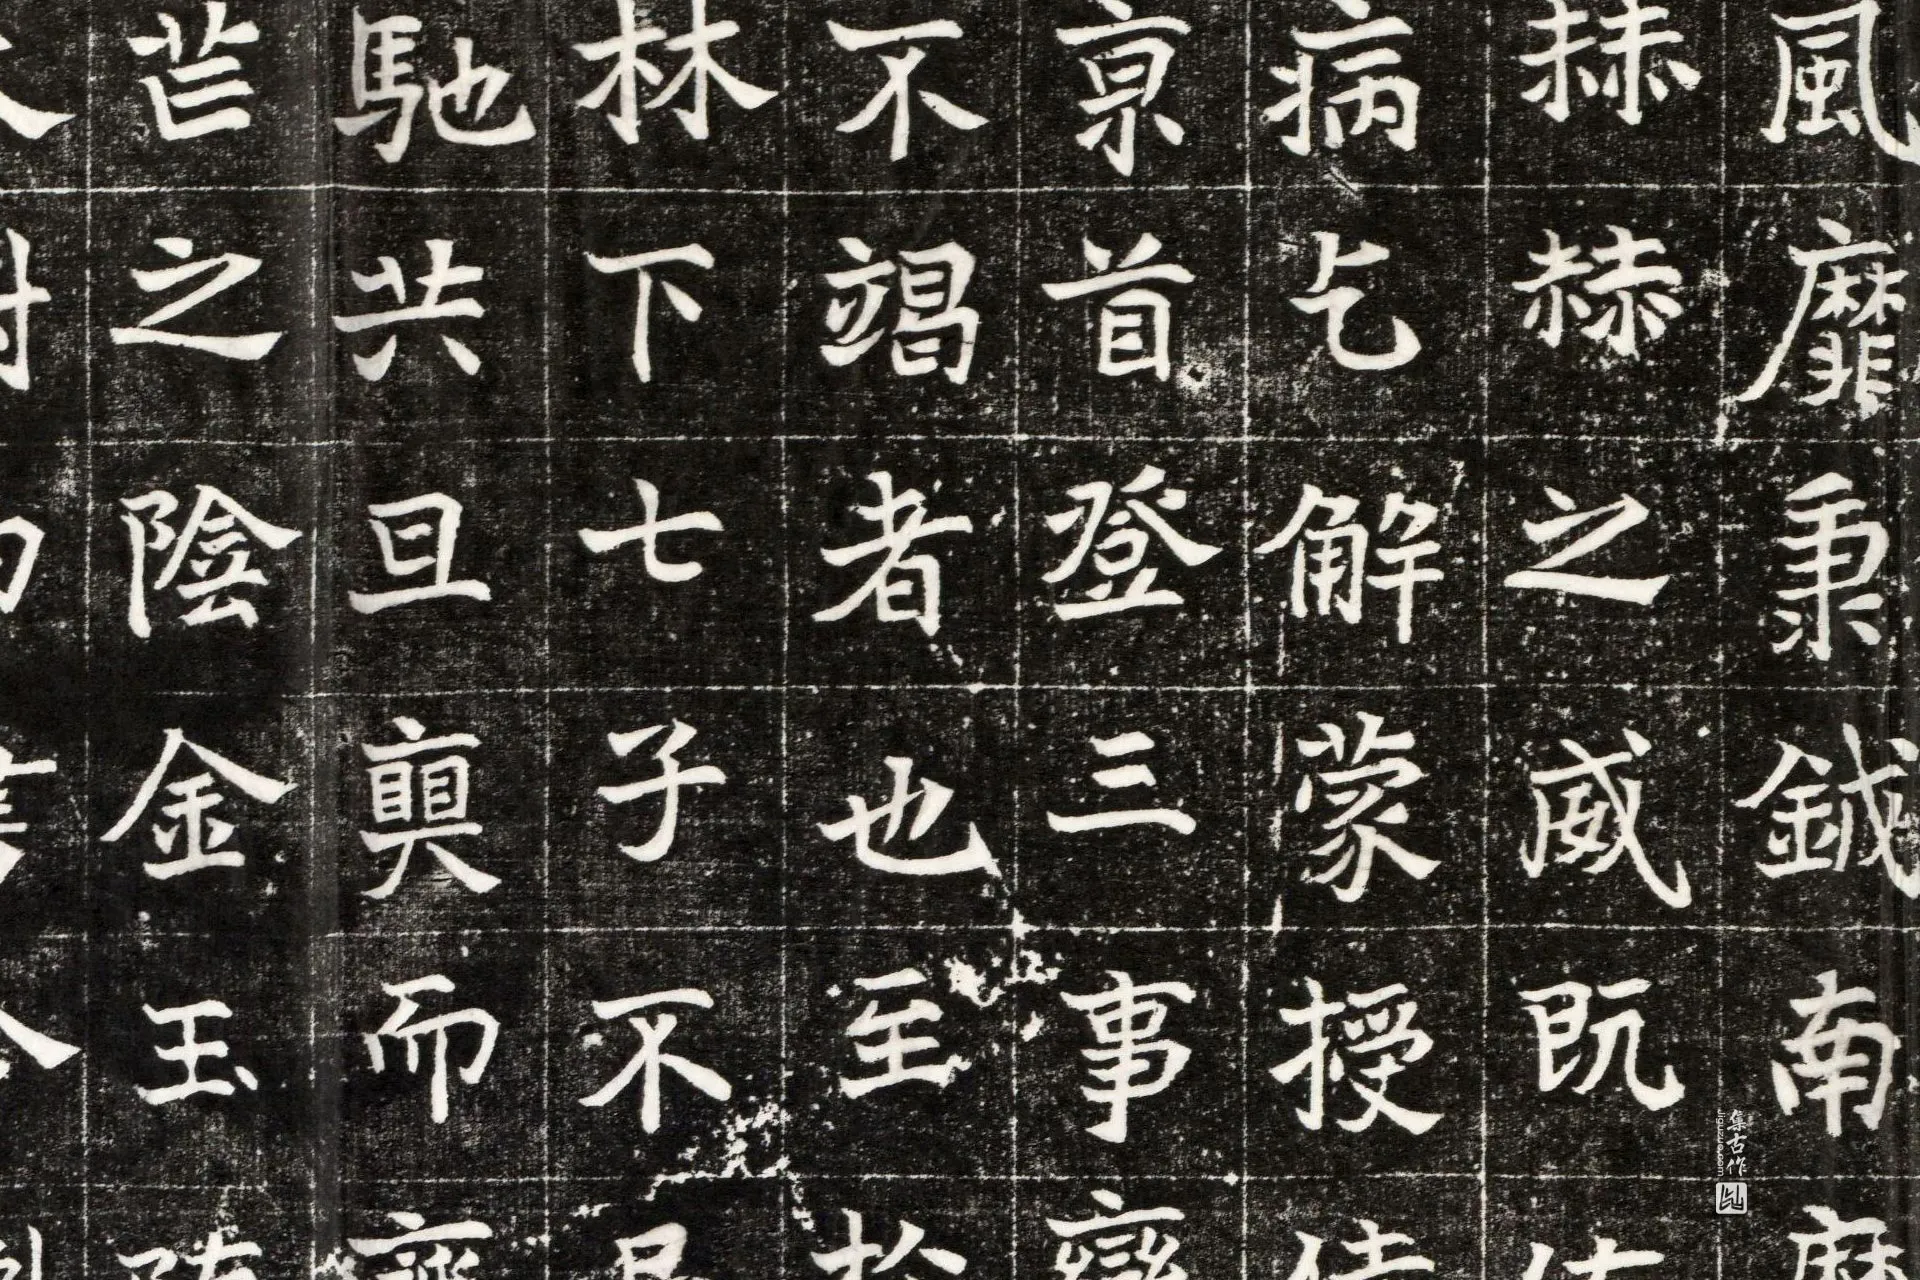 風靡秉鉞南麾
赫赫之威既
病乞解蒙授
亰首登三事燮
不竭者也至於
林下七子不
馳共旦奭而齊
芒之陰金玉
集古作